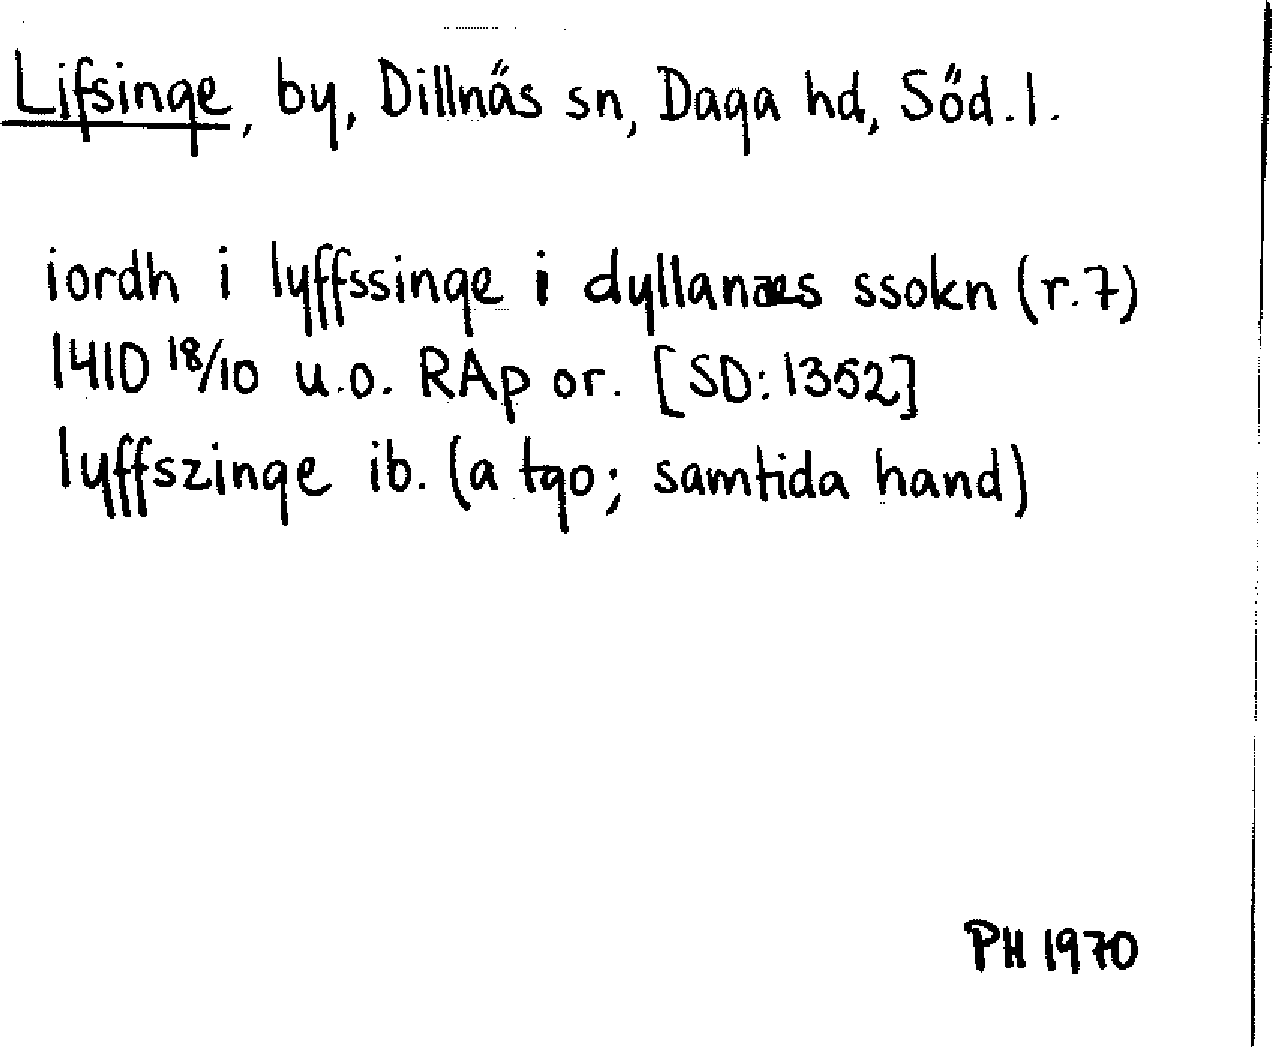 Lifsinge, by, Dillnäs sn, Daga hd, Söd.l.
iordh i lyffssinge i dyllanæs ssokn (r.7)
1410 18/10 u.o. RAp or. [SD: 1352]
lyffszinge ib. (a tgo; samtida hand)
PH 1970